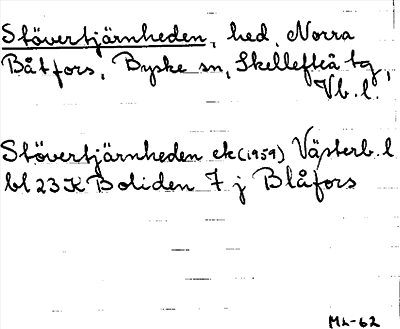 Stövertjärnheden, hed, Norra
Båtfors, Byske sn, Skellefteå tg,
Vb. l.
Stövertjärnheden ek (1959) Västerb. l
bl 23 K Boliden 7 j Blåfors
ML-62